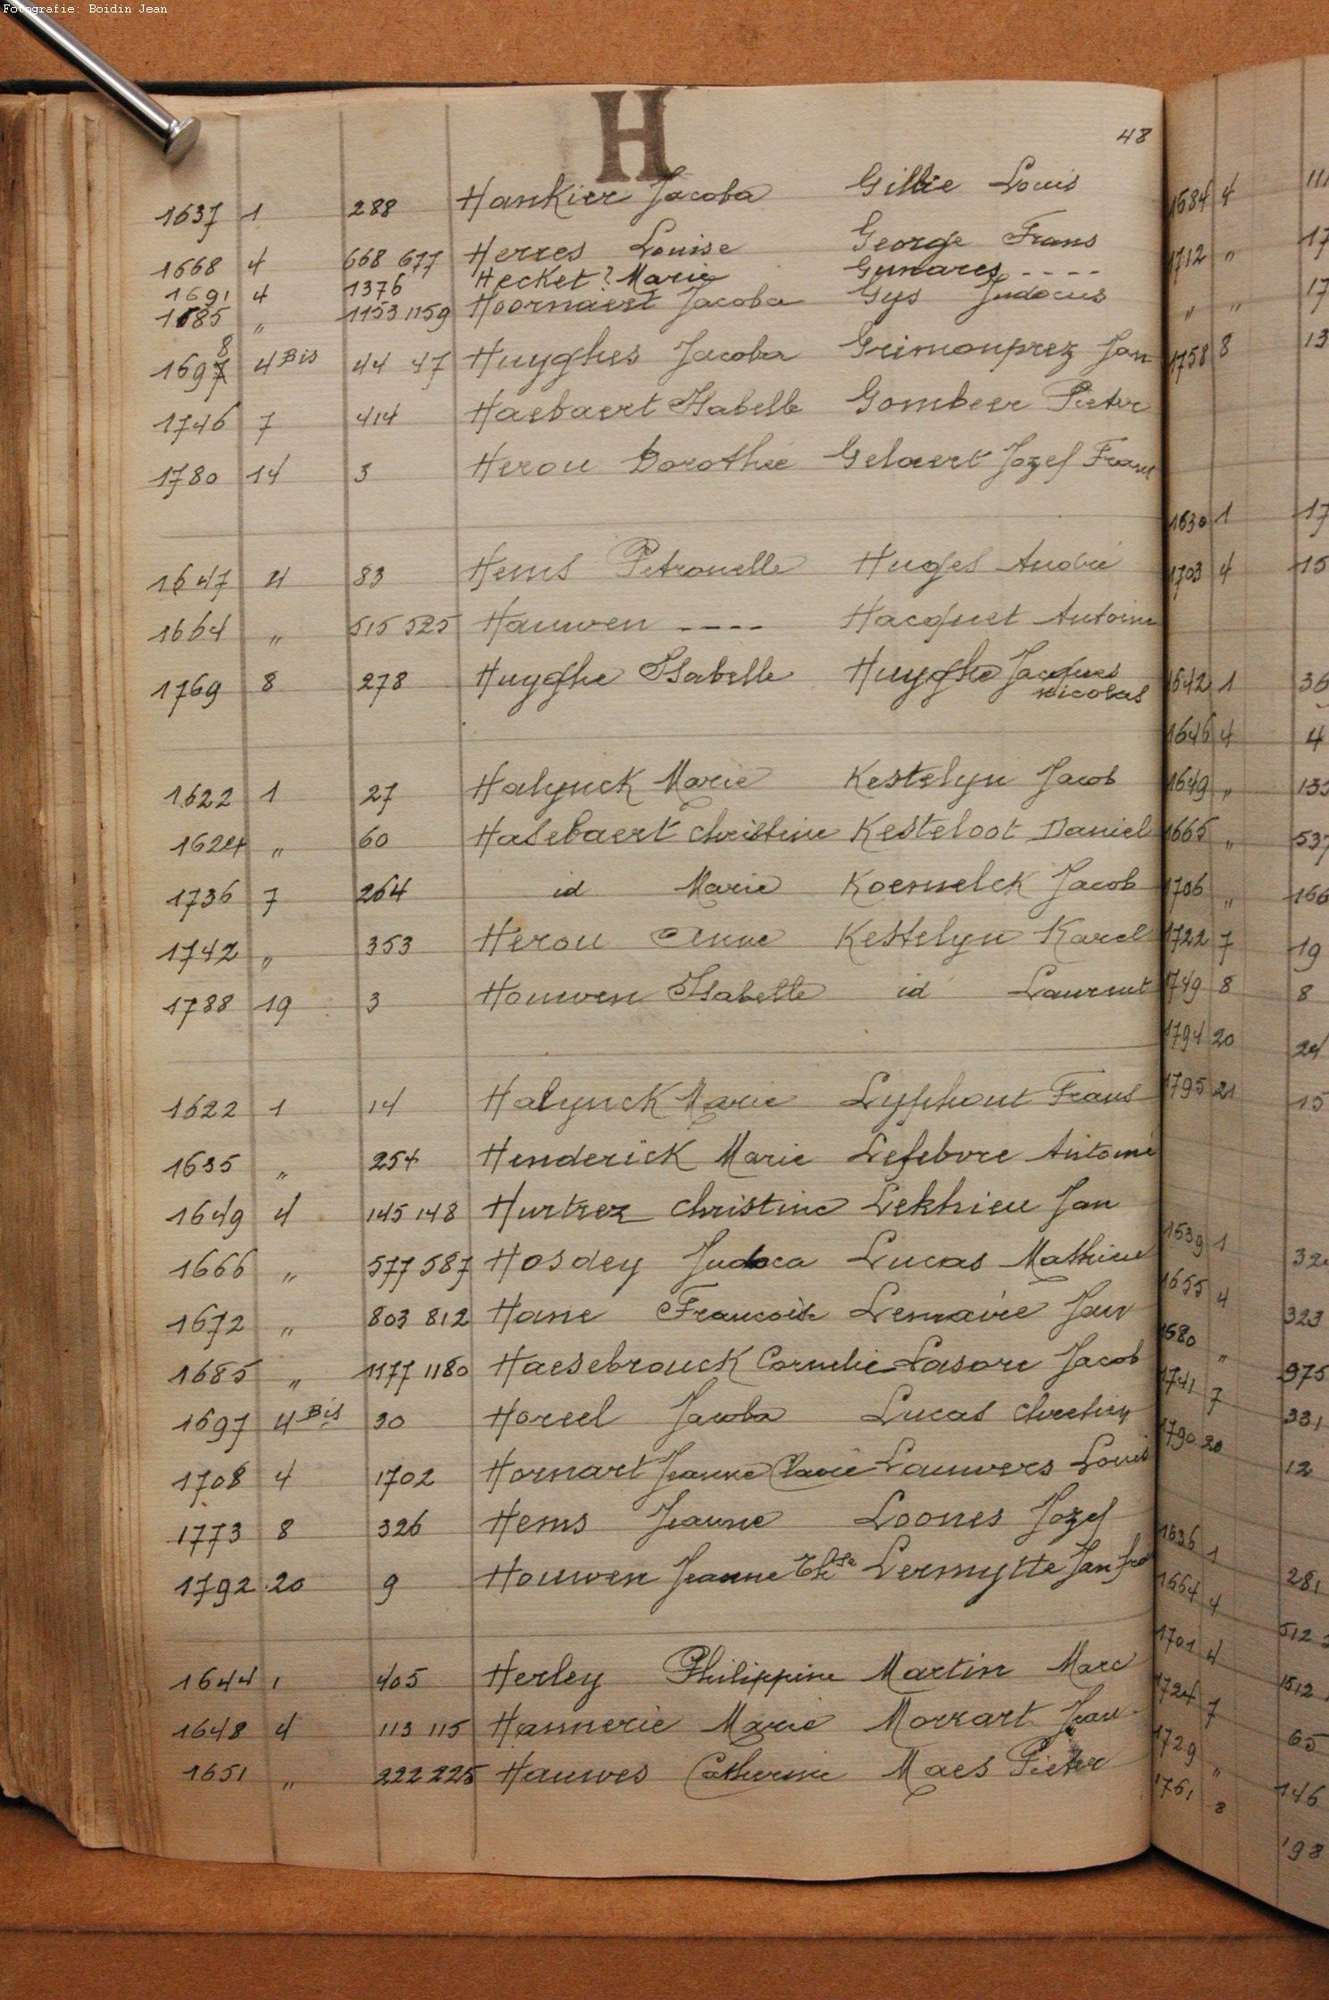 Fotografie: Boidin Jean
H
48
1637 1 288 Hankier Jacoba Gillie Louis
1668 4 668 677 Herres Louise George Frans
1691 4 1376 Hecket? Marie Gunares ----
1685 „ 1153 1159 Hoornaert Jacoba Gys Judocus
8
1697 4 Bis 44 47 Huyghes Jacoba Grimonprez Jan
1746 7 414 Haebaert Isabelle Gombeer Pieter
1780 14 3 Herou Dorothée Geloert Jozef Frans
1647 4 83 Hems Petronelle Huges André
1664 „ 515 525 Hauwen ---- Hacquet Antoine
1769 8 278 Huyghe Isabelle Huyghe Jacques
nicolas
1622 1 27 Halynck Marie Kestelyn Jacob
1624 „ 60 Hasebaert christine Kesteloot Daniel
1736 7 264 id Marie Koemelck Jacob
1742 „ 353 Herou Anne Kestelyn Karel
1788 19 3 Houwen Isabelle id Laurent
1622 1 14 Halynck Marie Lyphout Frans
1635 „ 254 Henderick Marie Lefebvre Antoine
1649 4 145 148 Hurtrez christine Lekhieu Jan
1666 „ 577 587 Hosdey Judoca Lucas Mathieu
1672 „ 803 812 Hane Francoise Lemavie Jan
1685 „ 1177 1180 Haesebrouck Cornelie Lasore Jacob
1697 4 Bis 30 Horeel Jacoba Lucas chretien
1708 4 1702 Hornart Jeanne Clavie Lauwers Louis
1773 8 326 Hems Jeanne Loones Jozef
1792 20 9 Houwen Jeanne Thse Lermytte Jan
1644 1 405 Herley Philippine Martin Marc
1648 4 113 115 Hannerie Marie Morrart Jean
1651 „ 222 225 Hauwes Catherine Maes Pieter
1684 4
1712 „ 17
„ „ 17
1758 8 13
1630 1 17
1703 4 15
1642 1 36
1646 4 4
1649 „ 133
1665 „ 537
1706 „ 166
1722 7 19
1749 8 8
1794 20 24
1795 21 15
1639 1 32
1655 4 323
1680 „ 975
1741 7 331
1790 20 12
1636 1 281
1664 4 512
1701 4 1512
1724 7 65
1729 „ 146
1761 8 198